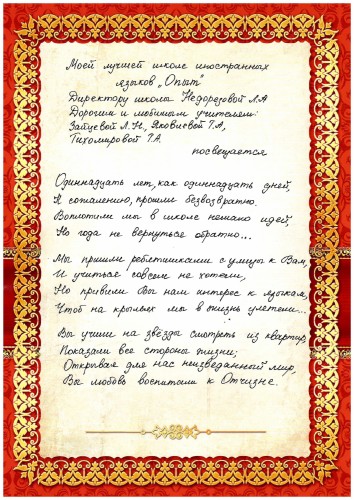 Моей лучшей школе иностранных
языков „Опыт"
Директору школы Недорезовой Л.А
Дорогим и любимым учителям:
Зайцевой Л.Н, Яковлевой Т.А,
Тихомировой Т.А.
посвещается
Одиннадцать лет, как одиннадцать дней,
К сожалению, прошли безвозвратно.
Воплотили мы в школе немало идей,
Но года не вернуться обратно...
Мы пришли ребятишками с улицы к Вам,
И учиться совсем не хотели,
Но привили Вы нам интерес к языкам,
Чтоб на крыльях мы в жизнь улетели...
Вы учили на звёзды смотреть из квартир,
Показали все стороны жизни;
Открывая для нас неизведанный мир,
Вы любовь воспитали к Отчизне.